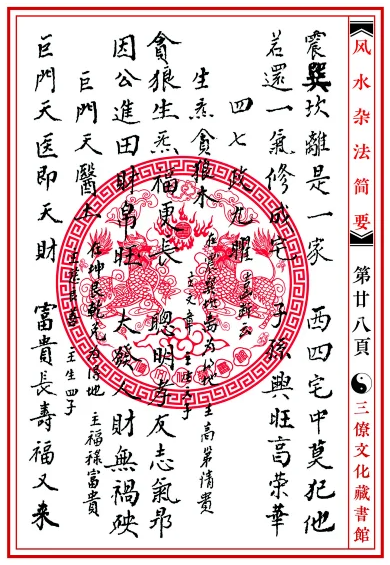 风水杂法简要
第廿八頁
三僚文化藏書館
震巽坎離是一家 西四宅中莫犯他
若還一氣修成宅 子孫興旺高榮華
四七 九曜
生炁貪狼木 在震巽坎為得地 主高第清貴
貪狼生炁福更長 聰明孝友志氣昂
因公進田財帛旺 大發人財無禍殃
巨門天醫土 在坤艮乾兌為得地 主福祿富貴
主生四子
巨門天医即天財 富貴長壽福又来